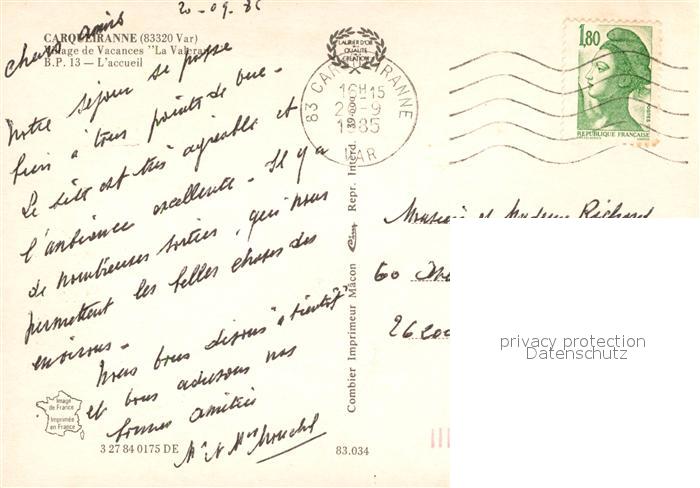 20-09-85
CARQUEIRANNE (83320 Var)
Village de Vacances "La Valérane"
B.P. 13 — L'accueil
chers amis
Notre séjour se passe
bien à tous points de vue.
Le site est très agréable et
l'ambiance excellente. Il y a
de nombreuses sorties, qui nous
permettent les belles choses des
environs.
Nous vous disons "à bientôt"
et vous adressons nos
bonnes amitiés
Mr et Mme
Image
de France
Imprimée
en France
3 27 84 0175 DE
83.034
Combier Imprimeur Mâcon Cim Repr. Interd. 39-000
LAURIER D'OR
QUALITÉ
CRÉATION
83 CARQUEIRANNE
16H15
1985
VAR
1,80
POSTES
REPUBLIQUE FRANÇAISE
Monsieur et Madame Richard
60
26
privacy protection
Datenschutz